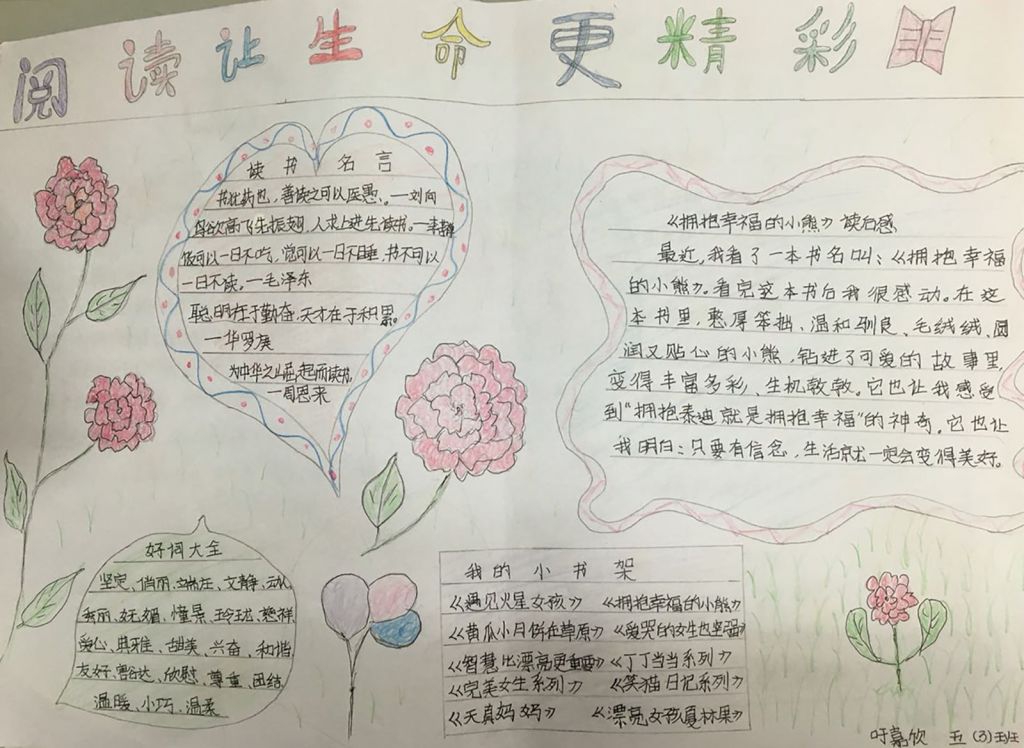 阅读让生命更精彩
读书名言
书犹药也，善读之可以医愚。—刘向
鸟欲高飞先振翅，人求上进先读书。—李苦禅
饭可以一日不吃，觉可以一日不睡，书不可以
一日不读。—毛泽东
聪明在于勤奋，天才在于积累。
—华罗庚
为中华之崛起而读书。
—周恩来
《拥抱幸福的小熊》读后感
最近，我看了一本书名叫：《拥抱幸福
的小熊》。看完这本书后我很感动。在这
本书里，憨厚笨拙、温和驯良、毛绒绒、圆
润又贴心的小熊，钻进了可爱的故事里，
变得丰富多彩、生机教教。它也让我感受
到“拥抱泰迪就是拥抱幸福”的神奇。它也让
我明白：只要有信念，生活就一定会变得美好。
好词大全
坚定、俏丽、端庄、文静、动人
秀丽、妩媚、憧景、玲珑、慈祥
爱心、典雅、甜美、兴奋、和谐
友好、豁达、欣慰、尊重、团结
温暖、小巧、温柔
我的小书架
《遇见火星女孩》 《拥抱幸福的小熊》
《黄瓜小月饼在草原》 《爱哭的女生也坚强》
《智慧比漂亮更重要》 《丁丁当当系列》
《完美女生系列》 《笑猫日记系列》
《天真妈妈》 《漂亮女孩夏林果》
嘉欣 五（3）班